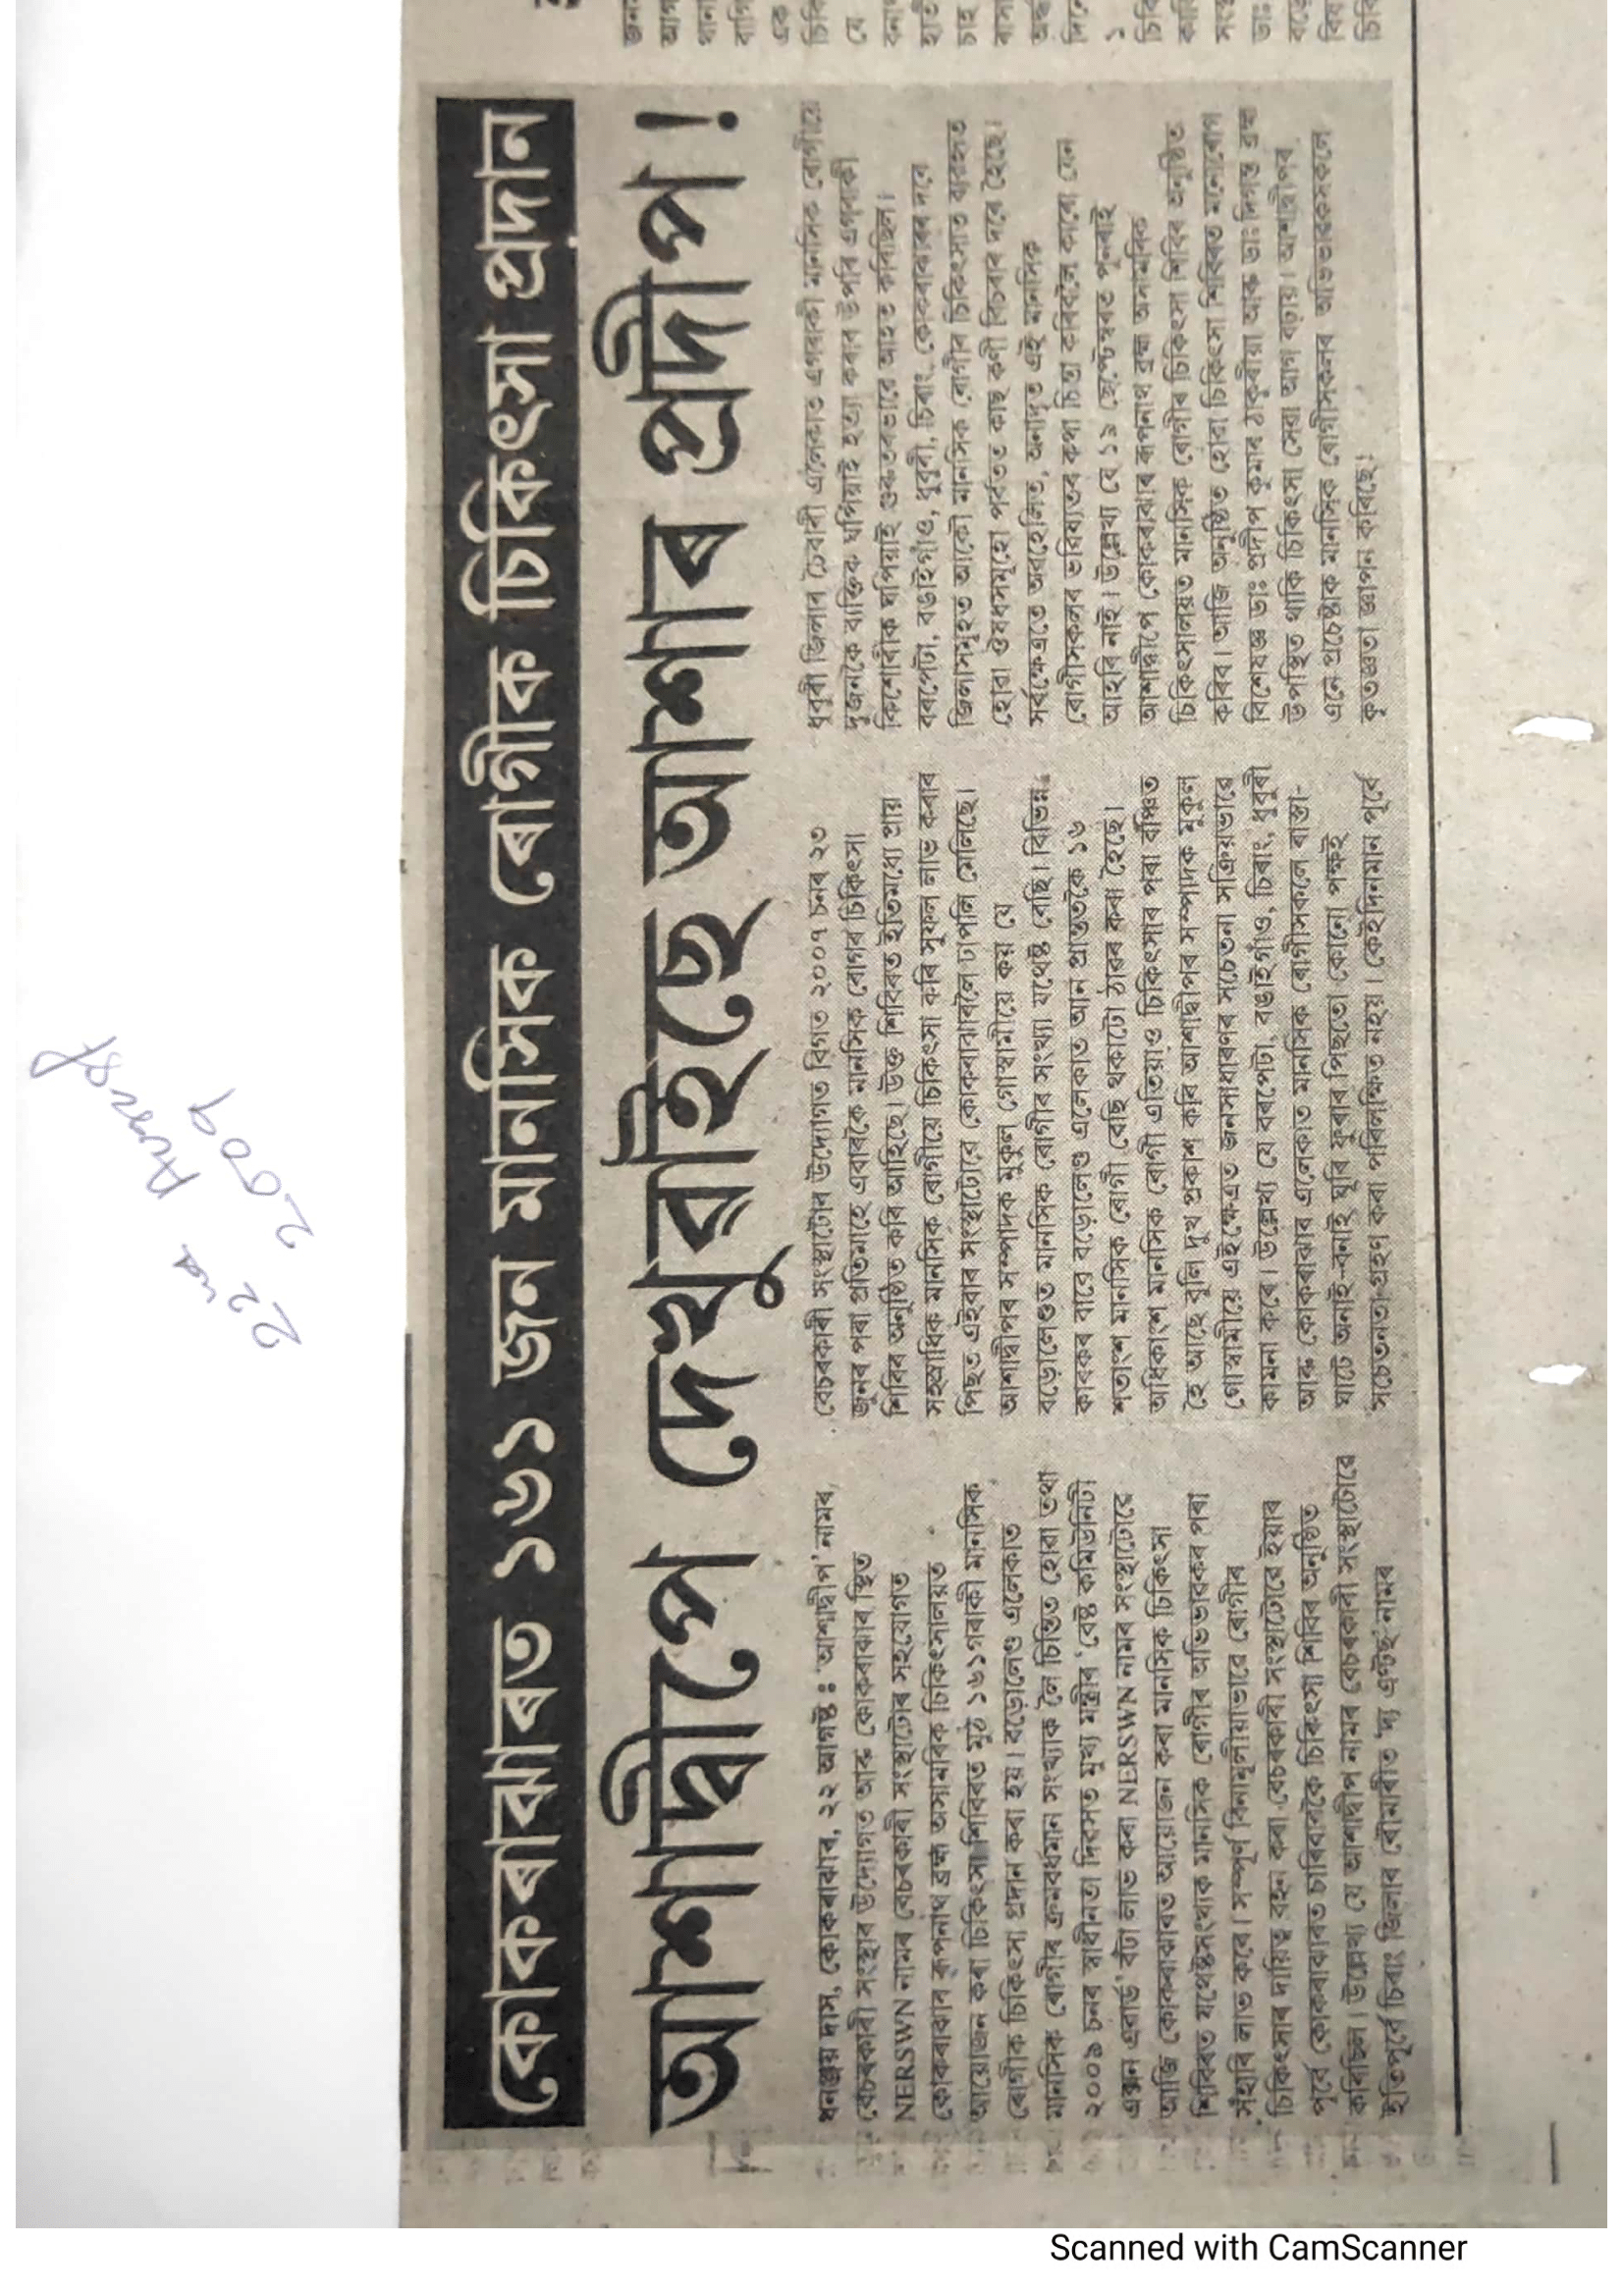 22nd August
2009
কোকৰাঝাৰত ১৬১ জন মানসিক ৰোগীক চিকিৎসা প্ৰদান
আশাদ্বীপে দেখুৱাইছে আশাৰ প্ৰদীপ!
ধনঞ্জয় দাস, কোকৰাঝাৰ, ২২ আগষ্ট ঃ 'আশাদ্বীপ' নামৰ
বেচৰকাৰী সংস্থাৰ উদ্যোগত আৰু কোকৰাঝাৰ স্থিত
NERSWN নামৰ বেচৰকাৰী সংস্থাটোৰ সহযোগত
কোকৰাঝাৰ ৰূপনাথ ব্ৰহ্ম অসামৰিক চিকিৎসালয়ত
আয়োজন কৰা চিকিৎসা শিবিৰত মুঠ ১৬১গৰাকী মানসিক
ৰোগীক চিকিৎসা প্ৰদান কৰা হয়। বড়োলেণ্ড এলেকাত
মানসিক ৰোগীৰ ক্ৰমবৰ্ধমান সংখ্যাক লৈ চিন্তিত হোৱা তথা
২০০৯ চনৰ স্বাধীনতা দিৱসত মুখ্য মন্ত্ৰীৰ 'বেষ্ট কমিউনিটী
এক্সন এৱাৰ্ড' বঁটা লাভ কৰা NERSWN নামৰ সংস্থাটোৱে
আজি কোকৰাঝাৰত আয়োজন কৰা মানসিক চিকিৎসা
শিবিৰত যথেষ্টসংখ্যক মানসিক ৰোগীৰ অভিভাৱকৰ পৰা
সঁহাৰি লাভ কৰে। সম্পূৰ্ণ বিনামূলীয়াভাৱে ৰোগীৰ
চিকিৎসাৰ দায়িত্ব বহন কৰা বেচৰকাৰী সংস্থাটোৱে ইয়াৰ
পূৰ্বে কোকৰাঝাৰত চাৰিবাৰকৈ চিকিৎসা শিবিৰ অনুষ্ঠিত
কৰিছিল। উল্লেখ্য যে আশাদ্বীপ নামৰ বেচৰকাৰী সংস্থাটোৱে
ইতিপূৰ্বে চিৰাং জিলাৰ ৰৌমাৰীত 'দ্য এণ্টছ' নামৰ
বেচৰকাৰী সংস্থাটোৰ উদ্যোগত বিগত ২০০৭ চনৰ ২৩
জুনৰ পৰা প্ৰতিমাহে এবাৰকৈ মানসিক ৰোগৰ চিকিৎসা
শিবিৰ অনুষ্ঠিত কৰি আহিছে। উক্ত শিবিৰত ইতিমধ্যে প্ৰায়
সহস্ৰাধিক মানসিক ৰোগীয়ে চিকিৎসা কৰি সুফল লাভ কৰাৰ
পিছত এইবাৰ সংস্থাটোৱে কোকৰাঝাৰলৈ ঢাপলি মেলিছে।
আশাদ্বীপৰ সম্পাদক মুকুল গোস্বামীয়ে কয় যে
বড়োলেণ্ডত মানসিক ৰোগীৰ সংখ্যা যথেষ্ট বেছি। বিভিন্ন
কাৰকৰ বাবে বড়োলেণ্ড এলেকাত আন প্ৰান্ততকৈ ১৬
শতাংশ মানসিক ৰোগী বেছি থকাটো ঠাৱৰ কৰা হৈছে।
অধিকাংশ মানসিক ৰোগী এতিয়াও চিকিৎসাৰ পৰা বঞ্চিত
হৈ আছে বুলি দুখ প্ৰকাশ কৰি আশাদ্বীপৰ সম্পাদক মুকুল
গোস্বামীয়ে এইক্ষেত্ৰত জনসাধাৰণৰ সচেতনা সক্ৰিয়ভাৱে
কামনা কৰে। উল্লেখ্য যে বৰপেটা, বঙাইগাঁও, চিৰাং, ধুবুৰী
আৰু কোকৰাঝাৰ এলেকাত মানসিক ৰোগীসকলে ৰাস্তা-
ঘাটে অনাই-বনাই ঘূৰি ফুৰাৰ পিছতো কোনো পক্ষই
সচেতনতা গ্ৰহণ কৰা পৰিলক্ষিত নহয়। কেইদিনমান পূৰ্বে
ধুবুৰী জিলাৰ এলেকাত এগৰাকী মানসিক ৰোগীয়ে
দুজনকৈ ব্যক্তিক ঘপিয়াই হত্যা কৰাৰ উপৰি এগৰাকী
কিশোৰীক ঘপিয়াই গুৰুতৰভাৱে আহত কৰিছিল।
বৰপেটা, বঙাইগাঁও, ধুবুৰী, চিৰাং, কোকৰাঝাৰৰ দৰে
জিলাসমূহত আকৌ মানসিক ৰোগীৰ চিকিৎসাত ব্যৱহৃত
হোৱা ঔষধসমূহো পৰ্বতত কাছ কণী বিচৰাৰ দৰে হৈছে।
সৰ্বক্ষেত্ৰতে অৱহেলিত, অনাদৃত এই মানসিক
ৰোগীসকলৰ ভৱিষ্যতৰ কথা চিন্তা কৰিবলৈ কাৰো যেন
আহৰি নাই। উল্লেখ্য যে ১৯ ছেপ্টেম্বৰত পুনৰাই
আশাদ্বীপে কোকৰাঝাৰ ৰূপনাথ ব্ৰহ্ম অসামৰিক
চিকিৎসালয়ত মানসিক ৰোগীৰ চিকিৎসা শিবিৰ অনুষ্ঠিত
কৰিব। আজি অনুষ্ঠিত হোৱা চিকিৎসা শিবিৰত মনোৰোগ
বিশেষজ্ঞ ডাঃ প্ৰদীপ কুমাৰ ঠাকুৰীয়া আৰু ডাঃ দিগন্ত ব্ৰহ্ম
উপস্থিত থাকি চিকিৎসা সেৱা আগ বঢ়ায়। আশাদ্বীপৰ
এনে প্ৰচেষ্টাক মানসিক ৰোগীসকলৰ অভিভাৱকসকলে
কৃতজ্ঞতা জ্ঞাপন কৰিছে।
Scanned with CamScanner